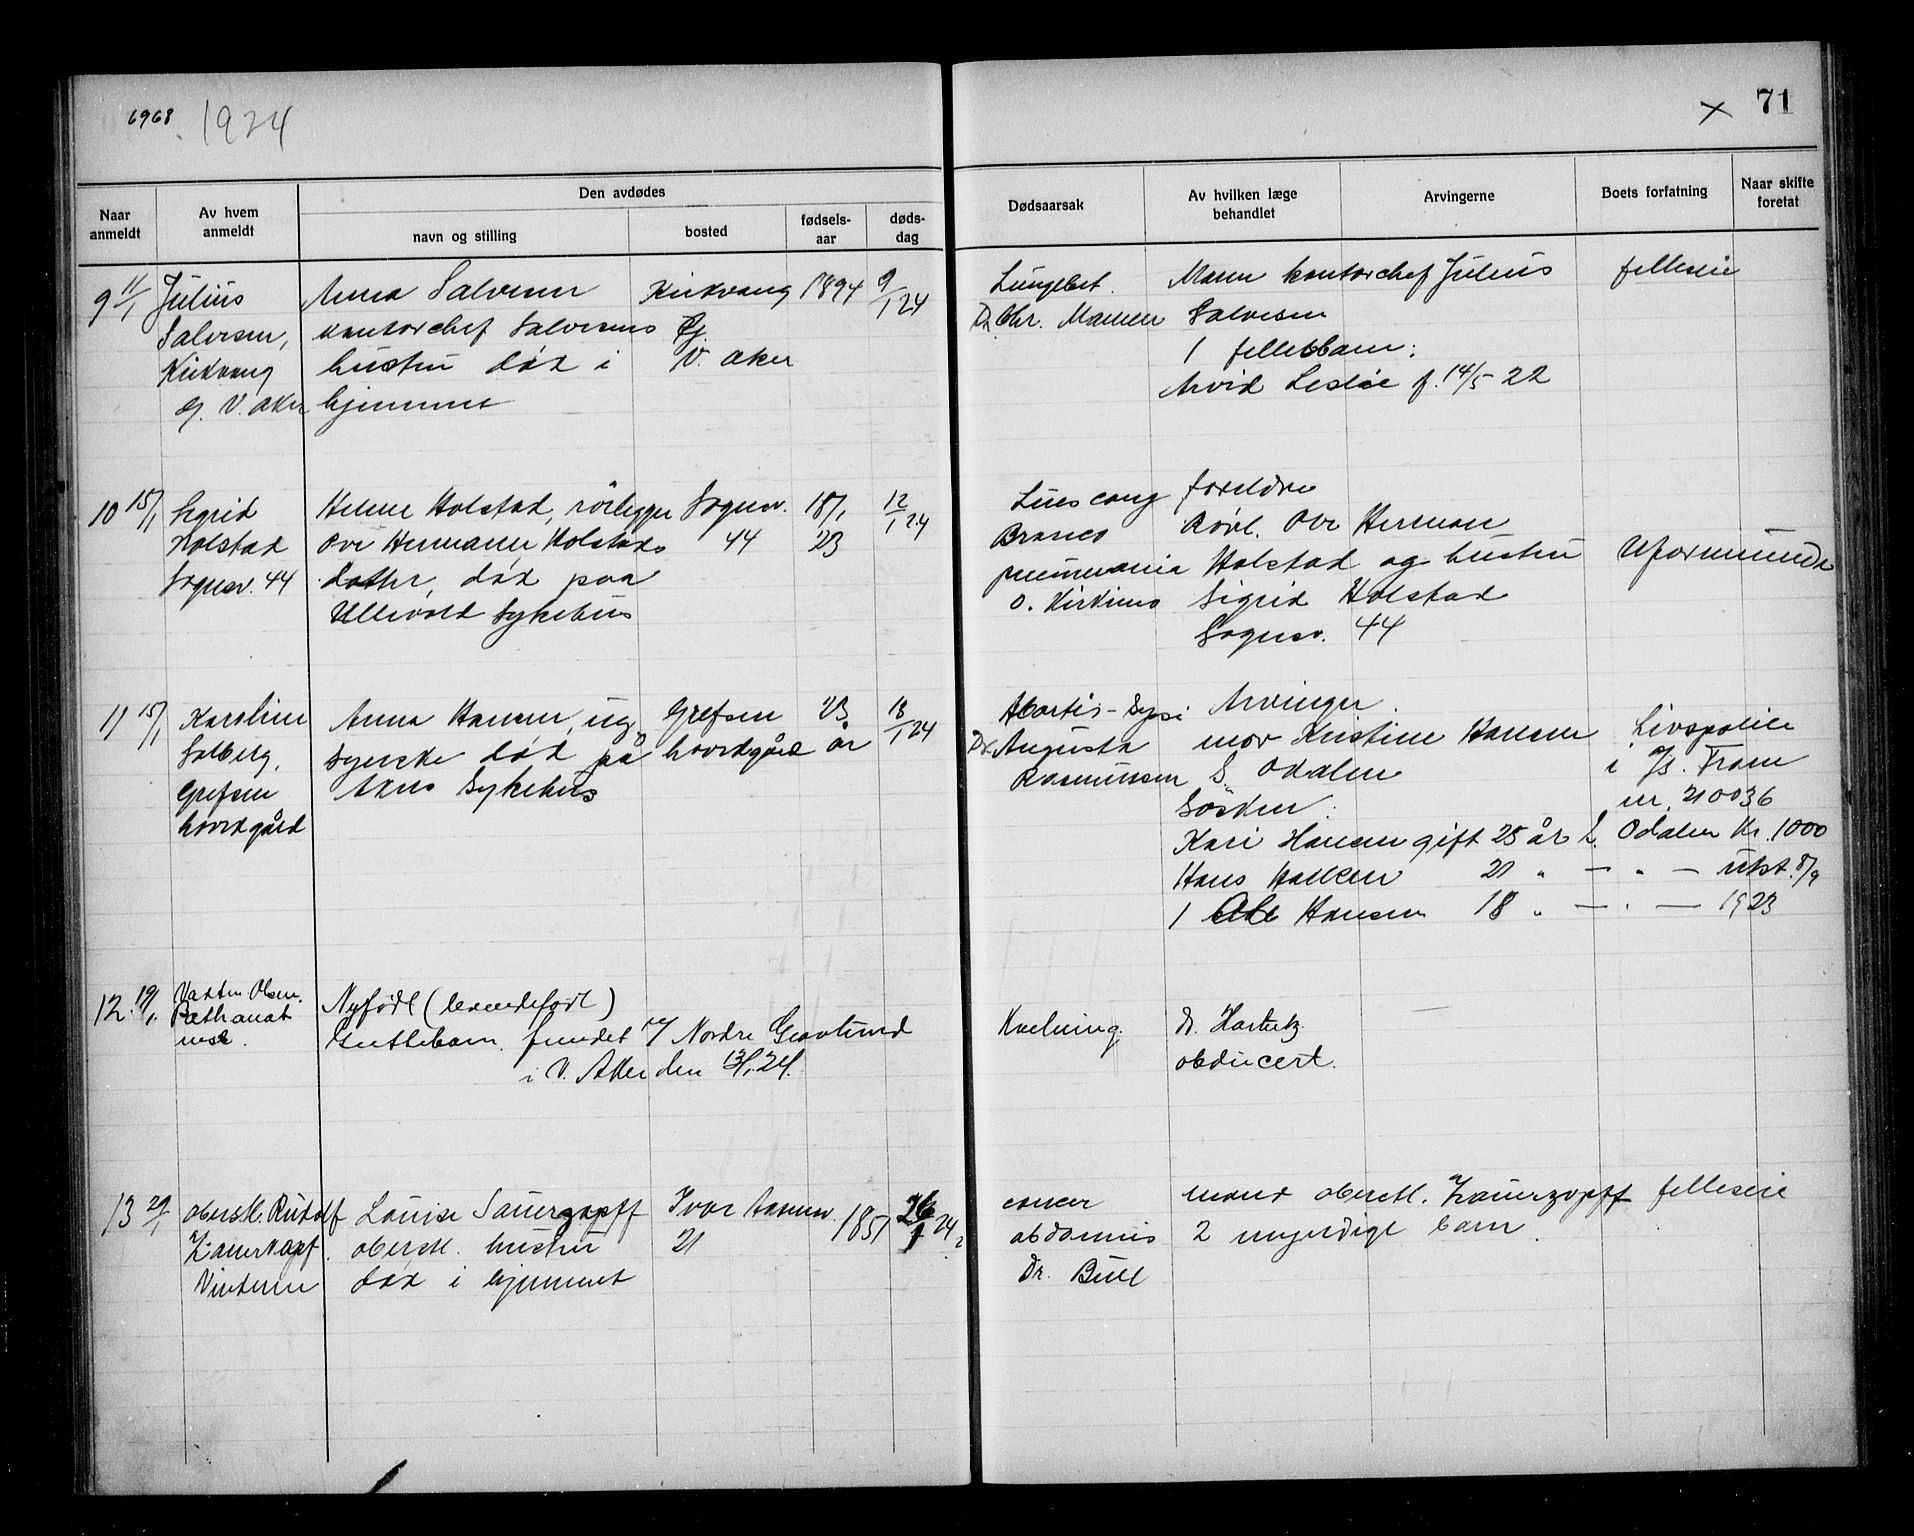 6968 1924
71
Den avdødes
Naar anmeldt
Av hvem anmeldt
navn og stilling
bosted
fødsels-aar
døds-dag
Dødsaarsak
Av hvilken læge behandlet
Arvingerne
Boets forfatning
Naar skifte foretat
9 11/1 Julius Anna Salvesen Kirkvang 1894 9/1 24
Salvesen, kontorchef Salvesens Gj.
Kirkvang hustru død i V. Aker
Gj. V. Aker hjemmet
Lungebet. Mann kontorchef Julius felleseie
Dr Chr. Salvesen
1 fellesbarn:
Arvid f. 14/5 22
10 15/1 Sigrid Helene Holstad, rörlegger Sognsv. 18/1 12/1 24
Holstad Ove Hermann Holstads 44 23
Sognsv. 44 datter, død paa
Ullevold Sykehus
Lues cong foreldre
Bronco Rörl. Ove Herman
pneumonia Holstad og hustru Uformuende
Sigrid Holstad
Sognsv. 44
11 15/1 Karoline Anna Hansen, ug. Grefsen 23 13/1 24
Solberg, syerske død på hovedgård år
Grefsen Akers Sykehus
hovedgård
Abortis - Arvinger.
Dr Augusta mor Kristine Hansen Livspolice
Rasmussen S. Odalen i A/s. Fram
Søsken: nr. 210036
Kari Hansen gift 25 år S. Odalen Kr. 1000
Hans Hansen 21 " — " — utst. 8/9
1 Hansen 18 " — " — 1923
12. 19/1 Olsen. Nyfødt (levendefødt)
Guttebarn, fundet v/ Nordre Gravlund
i V. Aker den 13/1 24.
Kvelning. dr. Harbitz
obducert.
13 29/1 oberstl. Rudolf Louise Sauerzapff Ivar Aasenv. 1851 26/1 24
oberstl. hustru 21
Vinderen død i hjemmet
cancer mand oberstl. felleseie
abdominis 2 myndige barn.
Dr. Bull